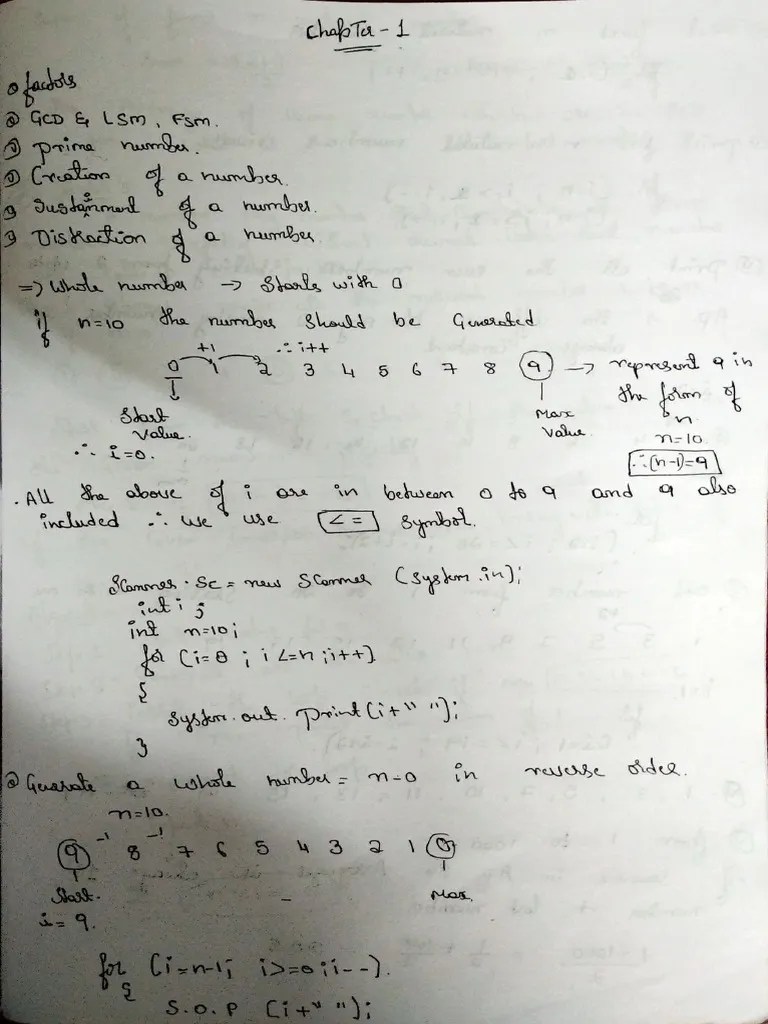 Chapter - 1
factors
GCD & LSM, FSM.
prime number.
Creation of a number.
Sustainment of a number.
Distraction of a number.
=> Whole number → Starts with 0
if n=10 the number should be Generated
+1 ∴ i++
0 1 2 3 4 5 6 7 8 9 → represent 9 in
the form of
n
Start Max
Value. Value.
n=10
∴ i=0. ∴(n-1)=9
. All the above of i are in between 0 to 9 and 9 also
included ∴ we use <= Symbol.
Scanner. Sc = new Scanner (System.in);
int i ;
int n=10;
for (i=0 ; i <=n ;i++)
{
System.out. print(i+" ");
}
Generate a whole number = n-0 in reverse order.
n=10.
-1 -1
9 8 7 6 5 4 3 2 1 0
Start. Max.
i= 9.
for (i=n-1; i>=0;i--).
{
S.O.P (i+" ");